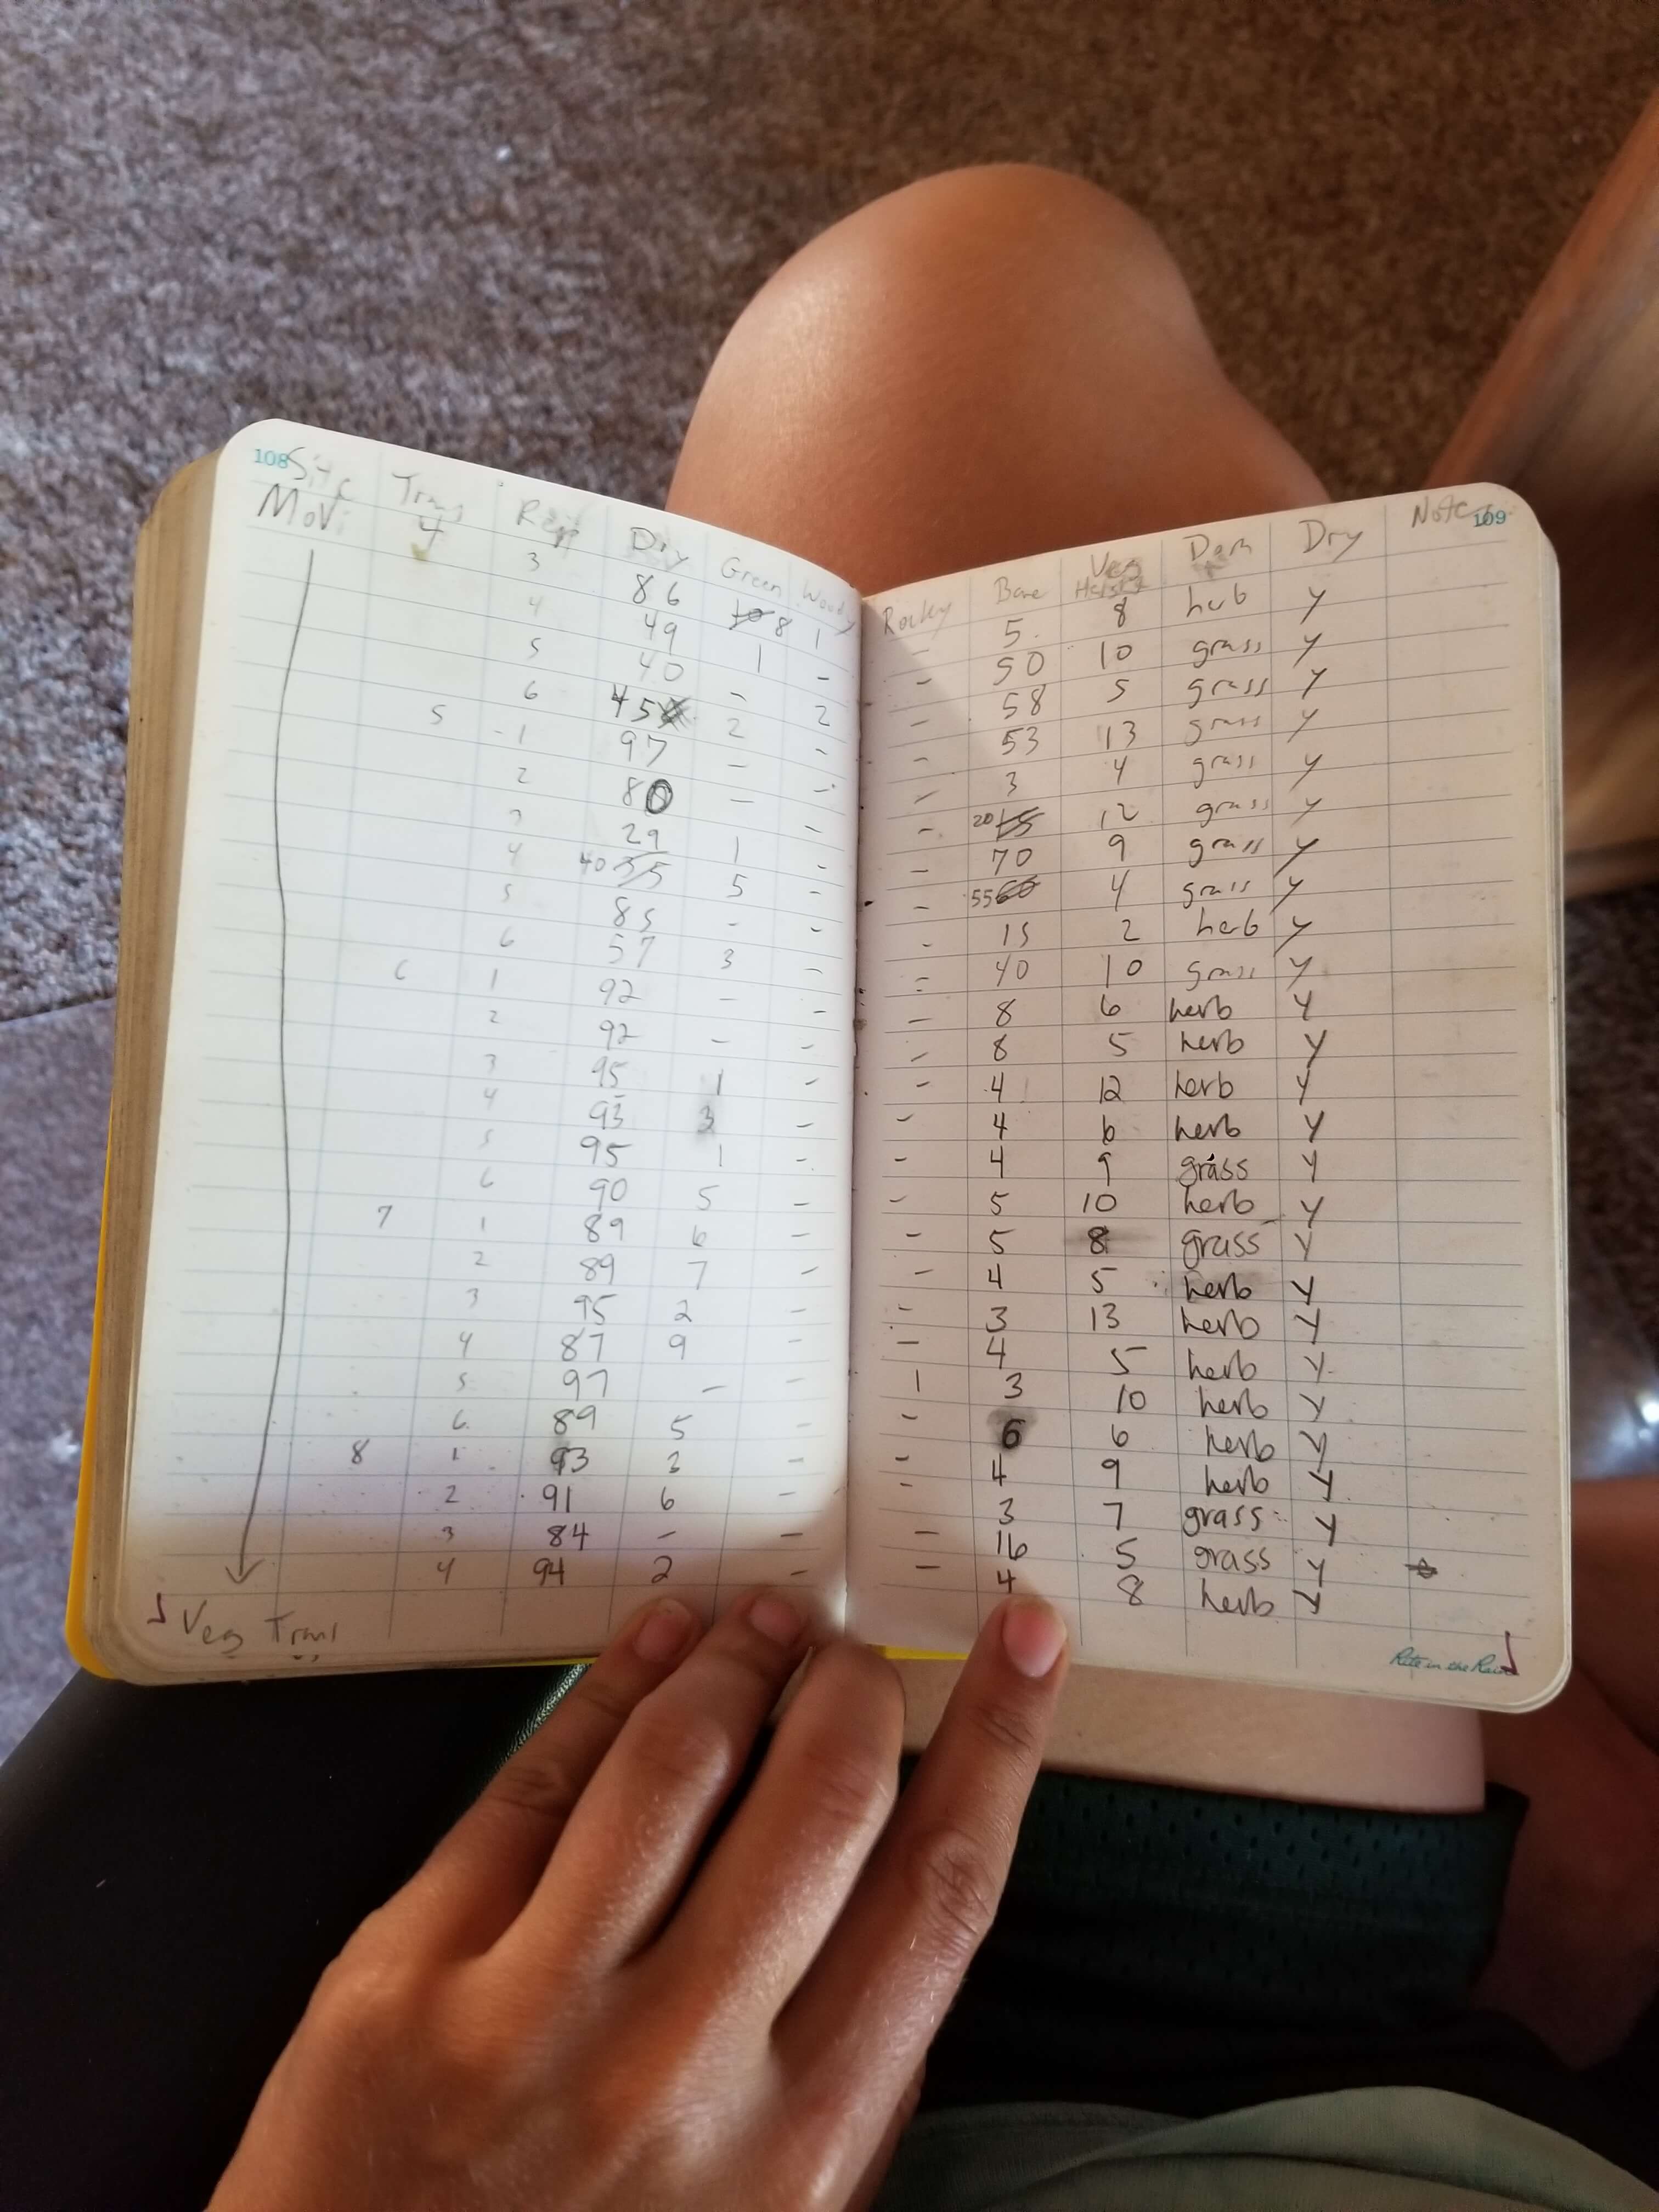 108 Site Trans Rep Dry Green Woody
MoVi 4 3 86 10 8 1
4 49 1 -
5 40 - 2
6 45 2 -
5 1 97 - -
2 80 - -
3 29 1 -
4 40 35 5 -
5 85 - -
6 57 3 -
6 1 92 - -
2 92 - -
3 95 1 -
4 93 3 -
5 95 1 -
6 90 5 -
7 1 89 6 -
2 89 7 -
3 95 2 -
4 87 9 -
5 97 - -
6 89 5 -
8 1 93 3 -
2 91 6 -
3 84 - -
4 94 2 -
Veg Trans
Rocky Bare Veg Height Dom Dry Notes 109
- 5 8 herb y
- 50 10 grass y
- 58 5 grass y
- 53 13 grass y
- 3 4 grass y
- 20 15 12 grass y
- 70 9 grass y
- 55 60 4 grass y
- 15 2 herb y
- 40 10 grass y
- 8 6 herb y
- 8 5 herb y
- 4 12 herb y
- 4 6 herb y
- 4 9 grass y
- 5 10 herb y
- 5 8 grass y
- 4 5 herb y
- 3 13 herb y
- 4 5 herb y
1 3 10 herb y
- 6 6 herb y
- 4 9 herb y
- 3 7 grass y
- 16 5 grass y
- 4 8 herb y
Rite in the Rain